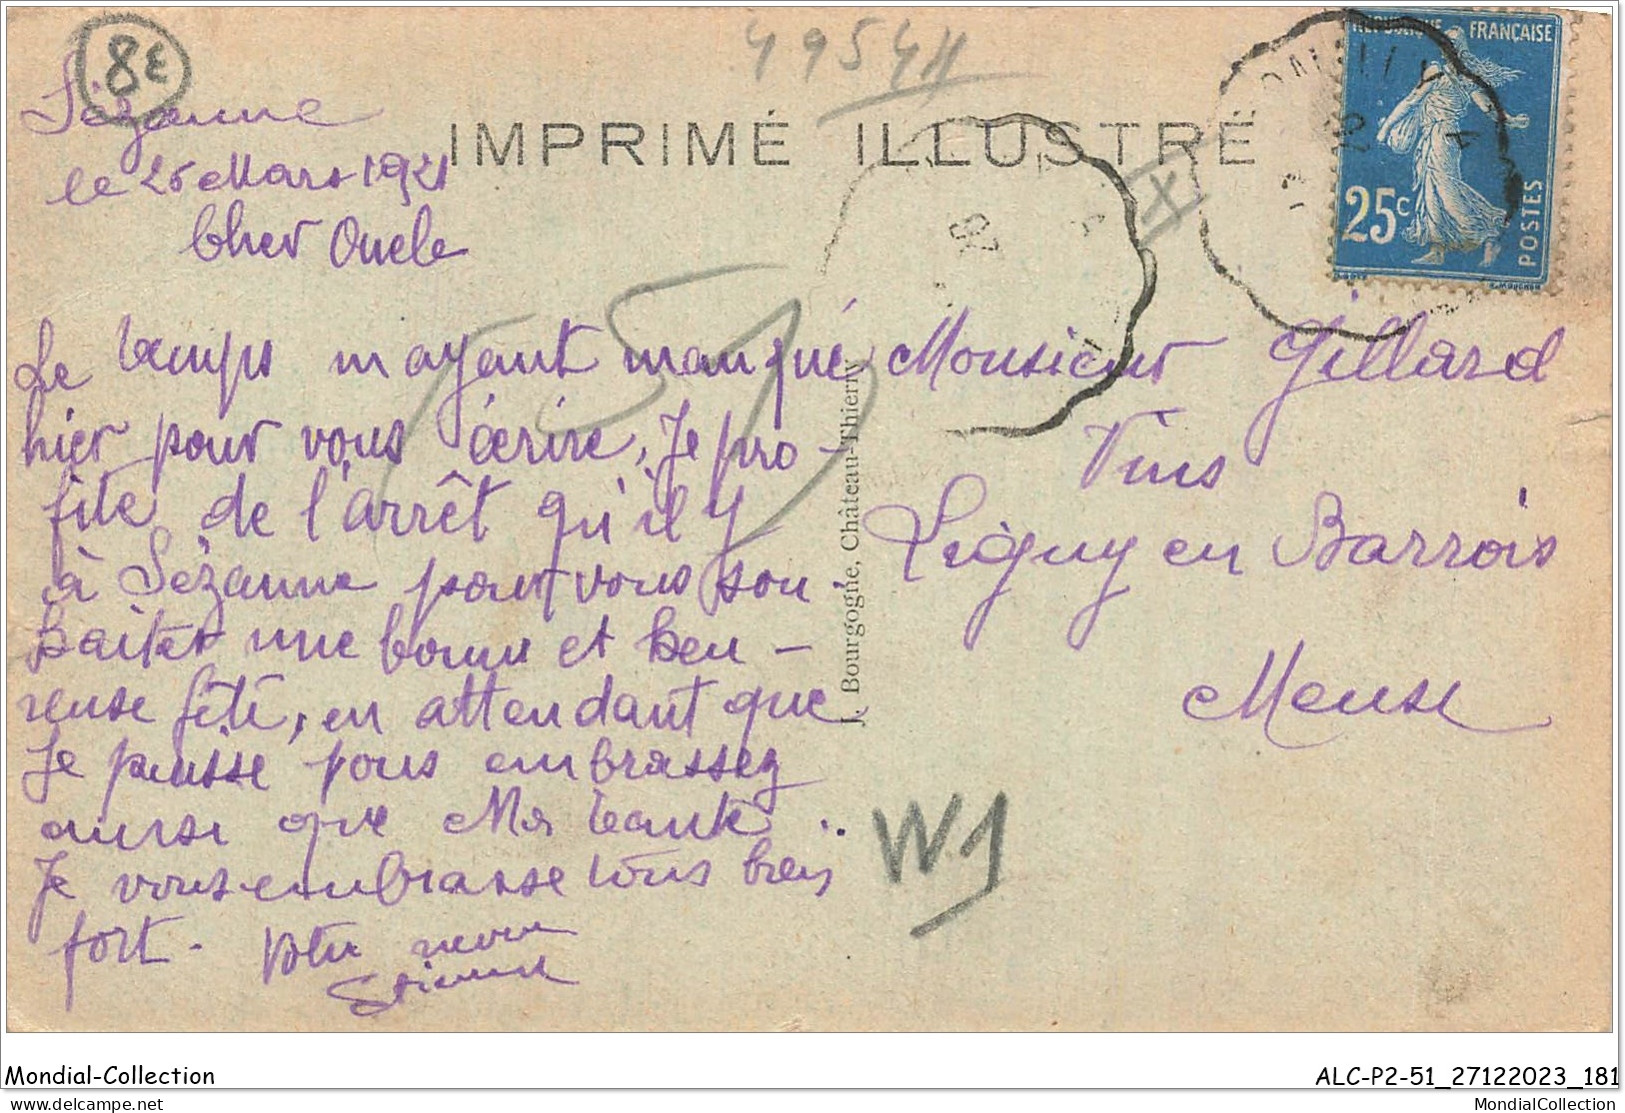 8€
49541
Sézanne
le 26 Mars 1921
Cher Oncle
IMPRIMÉ ILLUSTRÉ
RÉPUBLIQUE FRANÇAISE
25c
POSTES
26
Le temps mayant manqué
hier pour vous écrire, Je pro-
fite de l'arrêt qu'il y
à Sézanne pour vous sou-
haiter une bonne et heu-
reuse fête, en attendant que
Je puisse vous embrassez
aussi que Ma tante..
Je vous embrasse tous bien
fort. Votre neveu
Etienne
51
J. Bourgogne, Château-Thierry
Monsieur Gillard
Vins
Ligny en Barrois
Meuse
W1
Mondial-Collection
ALC-P2-51_27122023_181
www.delcampe.net
MondialCollection